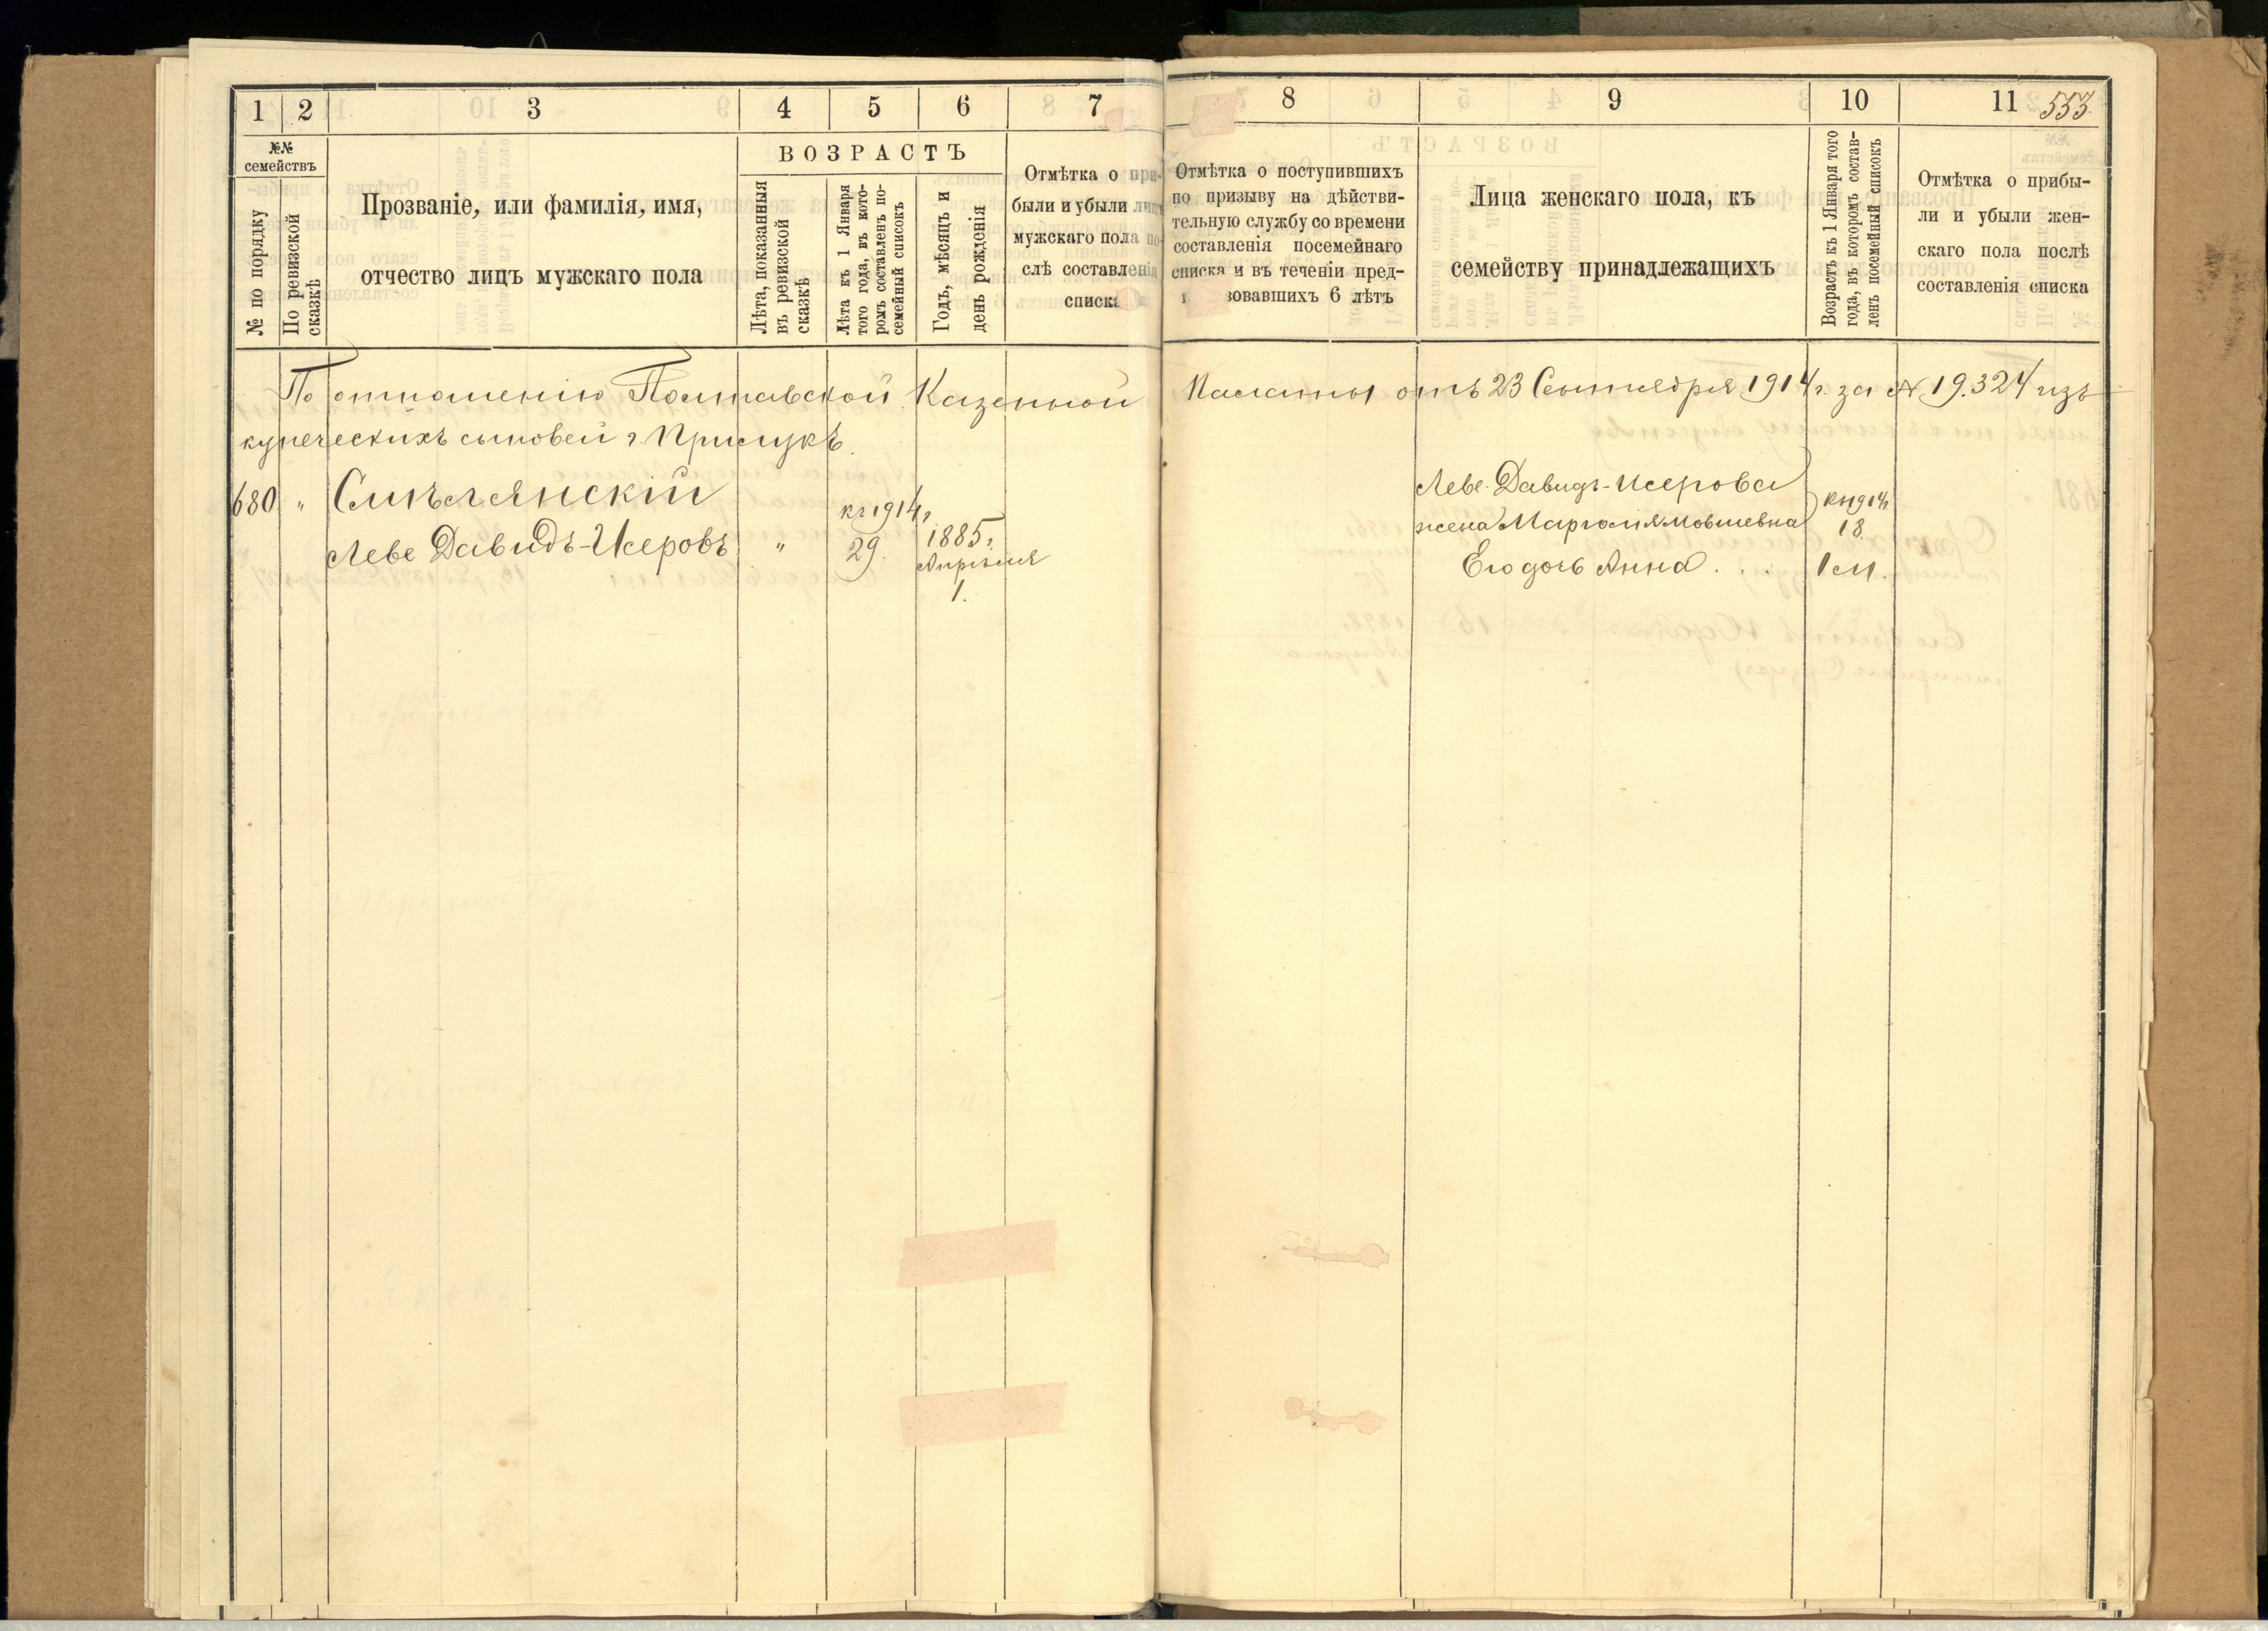 1 2 3 4 5 6 7
№№ семействъ
№ по порядку
По ревизской сказкѣ
Прозваніе, или фамилія, имя,
отчество лицъ мужскаго пола
ВОЗРАСТЪ
Лѣта, показанныя
въ ревизской
сказкѣ
Лѣта къ 1 Января
того года, въ кото-
ромъ составленъ по-
семейный списокъ
Годъ, мѣсяцъ и
день рожденія
Отмѣтка о при-
были и убыли лицъ
мужскаго пола по-
слѣ составленія
списка
8 9 10 11 553
Отмѣтка о поступившихъ
по призыву на дѣйстви-
тельную службу со времени
составленія посемейнаго
списка и въ теченіи пред-
зовавшихъ 6 лѣтъ
Лица женскаго пола, къ
семейству принадлежащихъ
Возрастъ къ 1 Января того
года, въ которомъ состав-
ленъ посемейный списокъ
Отмѣтка о прибы-
ли и убыли жен-
скаго пола послѣ
составленія списка
По отношенію Полтавской Казенной Палаты отъ 23 Сентября 1914 г. за № 19.324 изъ
купеческихъ сыновей г. Прилукъ.
680 " Смѣлянскій
къ 1914 г.
Леве Давидъ-Исеровъ " 29. 1885 г.
Апрѣля
1.
Леве Давидъ-Исерова
жена Марголя Мовшевна
къ 1914 г.
18.
Его дочь Анна . . . 1 м.